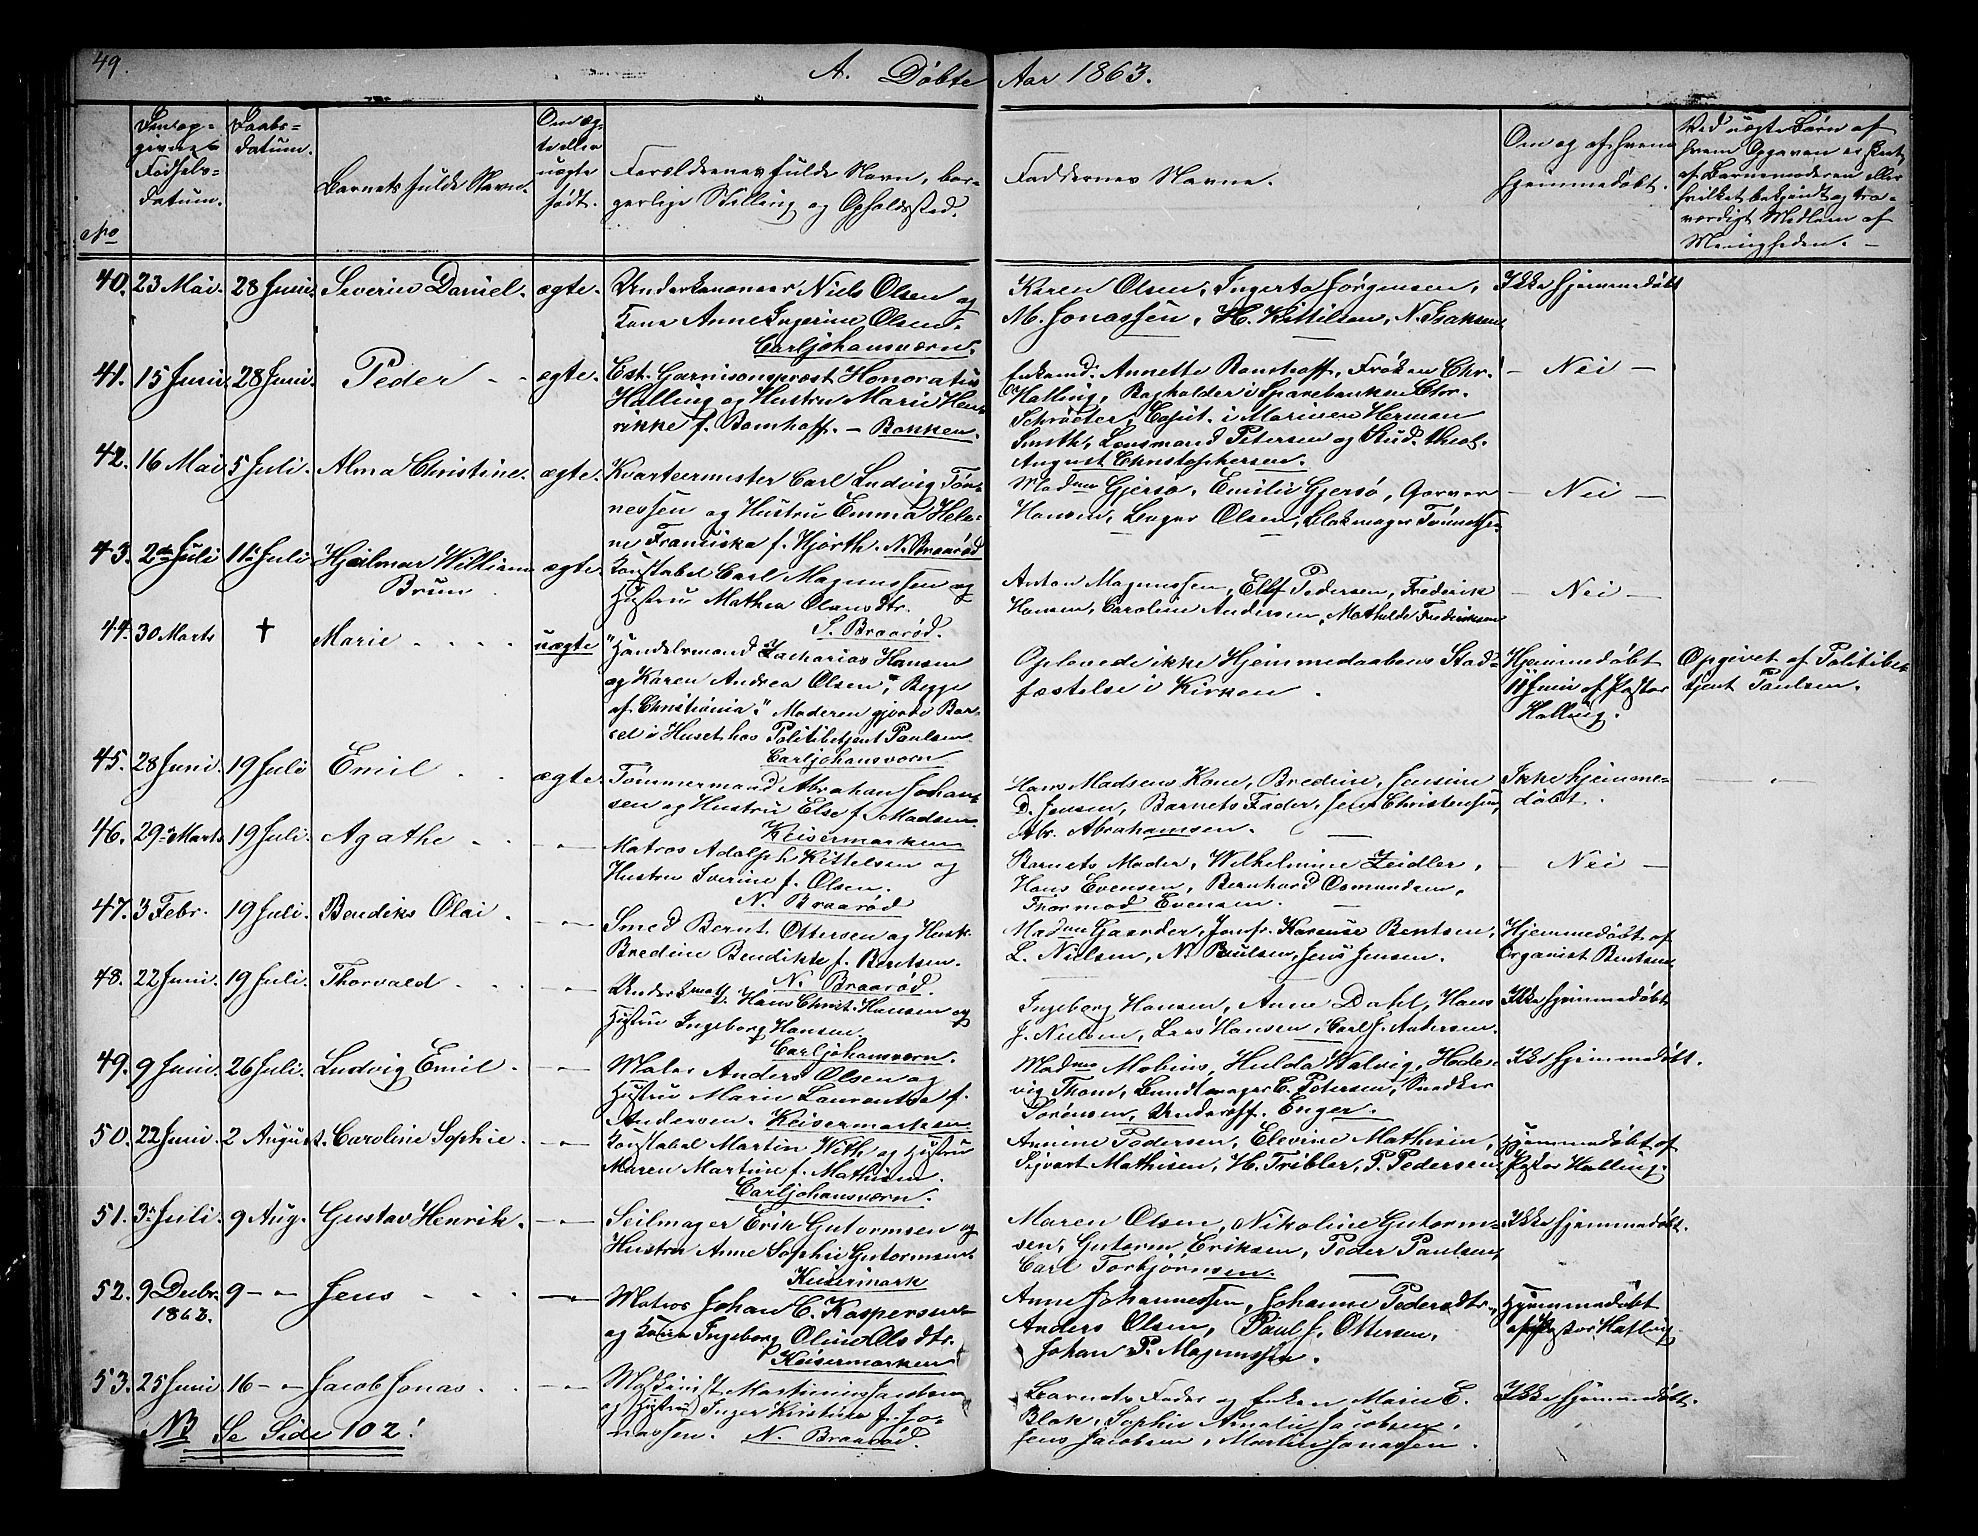 49.
A. Døbte Aar 1863.
No
Den op-
givne
Fødsels-
datum.
Daabs-
datum.
Barnets fulde Navn.
Om æg-
te eller
uægte
født.
Forældrenes fulde Navn, bor-
gerlige Stilling og Opholdssted.
Faddernes Navne.
Om og af hvem
hjemmedøbt.
Ved uægte Børn af
hvem Opgaven er skeet,
af Barnemoderen eller
hvilket bekjendt og tro-
værdigt Medlem af
Menigheden. -
40. 23 Mai. 28 Juni. Severin Daniel. ægte. Underkanoneer Niels Olsen og
Kone Anne Ingerine Olsen.
Carljohansværn.
Karen Olsen, Ingerta Jørgensen,
M. Jonassen, H. Kittilsen, N. Isaksen
Ikke hjemmedøbt
41. 15 Juni. 28 Juni. Peder - - ægte. Est. Garnisonsprest Honoratus
Halling og Hustru Marie Hen-
rikke f. Bomhoff. - Bakken.
Enkemd. Annette Bomhoff, Frøken Chr.
Halling, Bogholder i Sparebanken Chr.
Schrøeter, Capit. i Marinen Herman
Smith, Lensmand Petersen og Stud. theol.
August Christophersen.
- Nei -
42. 16 Mai 5 Juli. Alma Christine. ægte. Kvarteermester Carl Ludvig Tøn-
nessen og Hustru Emma Hele-
ne Franciska f. Hjorth. N. Braarød
Madme Gjersø, Emilie Gjersø, Garver
Hansen, Lenger Olsen, Blokmager Tønnesse-
- Nei -
43. 2den Juli 11te Juli. Hjalmar William
Brun
ægte. Konstabel Carl Magnussen og
Hustru Mathea Olausdtr.
S. Braarød.
Anton Magnussen, Ellf Pedersen, Frederik
Hansen, Caroline Andersen, Mathilde Frederiksen
- Nei -
44. 30 Marts † Marie . . . . uægte "Handelsmand Zacharias Hansen
og Karen Andrea Olsen", Begge
af Christiania." Moderen gjorde Bar-
sel i Huset hos Politibetjent Paulsen.
Carljohansvern
Oplevede ikke Hjemmedaabens Stad-
fæstelse i Kirken.
Hjemmedøbt
11 Juni af Pastor
Halling.
Opgivet af Politibe-
tjent Paulsen.
45. 28 Juni. 19 Juli Emil . . ægte. Tømmermand Abraham Johan-
sen og Hustru Else f. Madsen.
Keisermarken
Hans Madsens Kone, Bredine, Jensine
D. Jensen, Barnets Fader, Jens Christensen,
Abr. Abrahamsen.
Ikke hjemme-
døbt.
46. 29 Marts 19 Juli. Agathe . . - " - Matros Adolph Kittelsen og
Hustru Severine f. Olsen.
N. Braarød
Barnets Moder, Wilhelmine Zeidler,
Hans Evensen, Bernhard Osmundsen,
Thormod Evensen.
- Nei -
47. 3 Febr. 19 Juli. Bendiks Olai . - " - Smed Bernt Ottersen og Hustr.
Bredine Bendikte f. Bentsen.
N. Braarød.
Madme Gaarder, Jomfr. Karense Bentsen,
L. Nielsen, N. Paulsen, Jens Jensen.
Hjemmedøbt af
Organist Bentsen
48. 22 Juni. 19 Juli. Thorvald . . . - " - Under
Hans Christ. Hansen og
Hustru Ingeborg Hansen.
Carljohansvern.
Ingeborg Hansen, Anne Dahl, Hans
J. Nielsen, Lars Hansen, Carl J. Andersen.
Ikke hjemmedøbt
49. 9 Juni. 26 Juli. Ludvig Emil . - " - Maler Anders Olsen og
Hustru Marie Laurentse f.
Andersen. Keisermarken
Madme Mobius, Hulda Halvig, Hede-
vig Thom, Bundtmager C. Petersen, Snedker
Sørensen, Underoff. Enger.
Ikke hjemmedøbt.
50. 22 Juni. 2 August. Caroline Sophie. - " - Konstabel Martin With og Hustru
Maren Martine f. Mathisen.
Carljohansværn.
Annine Pedersen, Elevine Mathisen,
Sigvart Mathisen, H. Tribler, P. Pedersen
Hjemmedøbt af
Pastor Halling.
51. 3die Juli. 9 Aug. Gustav Henrik. - " - Seilmager Erik Gutormsen og
Hustru Anne Sophie Gutormsen.
Keisermark
Maren Olsen, Nikoline Gutorm-
sen, Gutorm Eriksen, Peder Paulsen,
Carl Torbjørnsen.
Ikke hjemmedøbt.
52. 9 Decbr.
1862.
9 - " - Jens . . . - " - Matros Johan C. Kaspersen
og Kone Ingeborg Oline Olsdtr.
Keisermarken
Anne Johannessen, Johanne Pedersdtr.,
Anders Olsen, Paul J. Ottersen,
Johan P. Magnussen.
Hjemmedøbt
af Pastor Halling
53. 25 Juni 16 - " - Jacob Jonas. . - " - Maskinist Martinius Jacobsen
og Hustru Inger Kirstine f. Jo-
nassen. N. Braarød.
Barnets Fader og Enken Marie E.
Blak, Sophie Amalie Jacobsen,
Jens Jacobsen, Martin Jonassen.
Ikke hjemmedøbt.
NB Se Side 102!